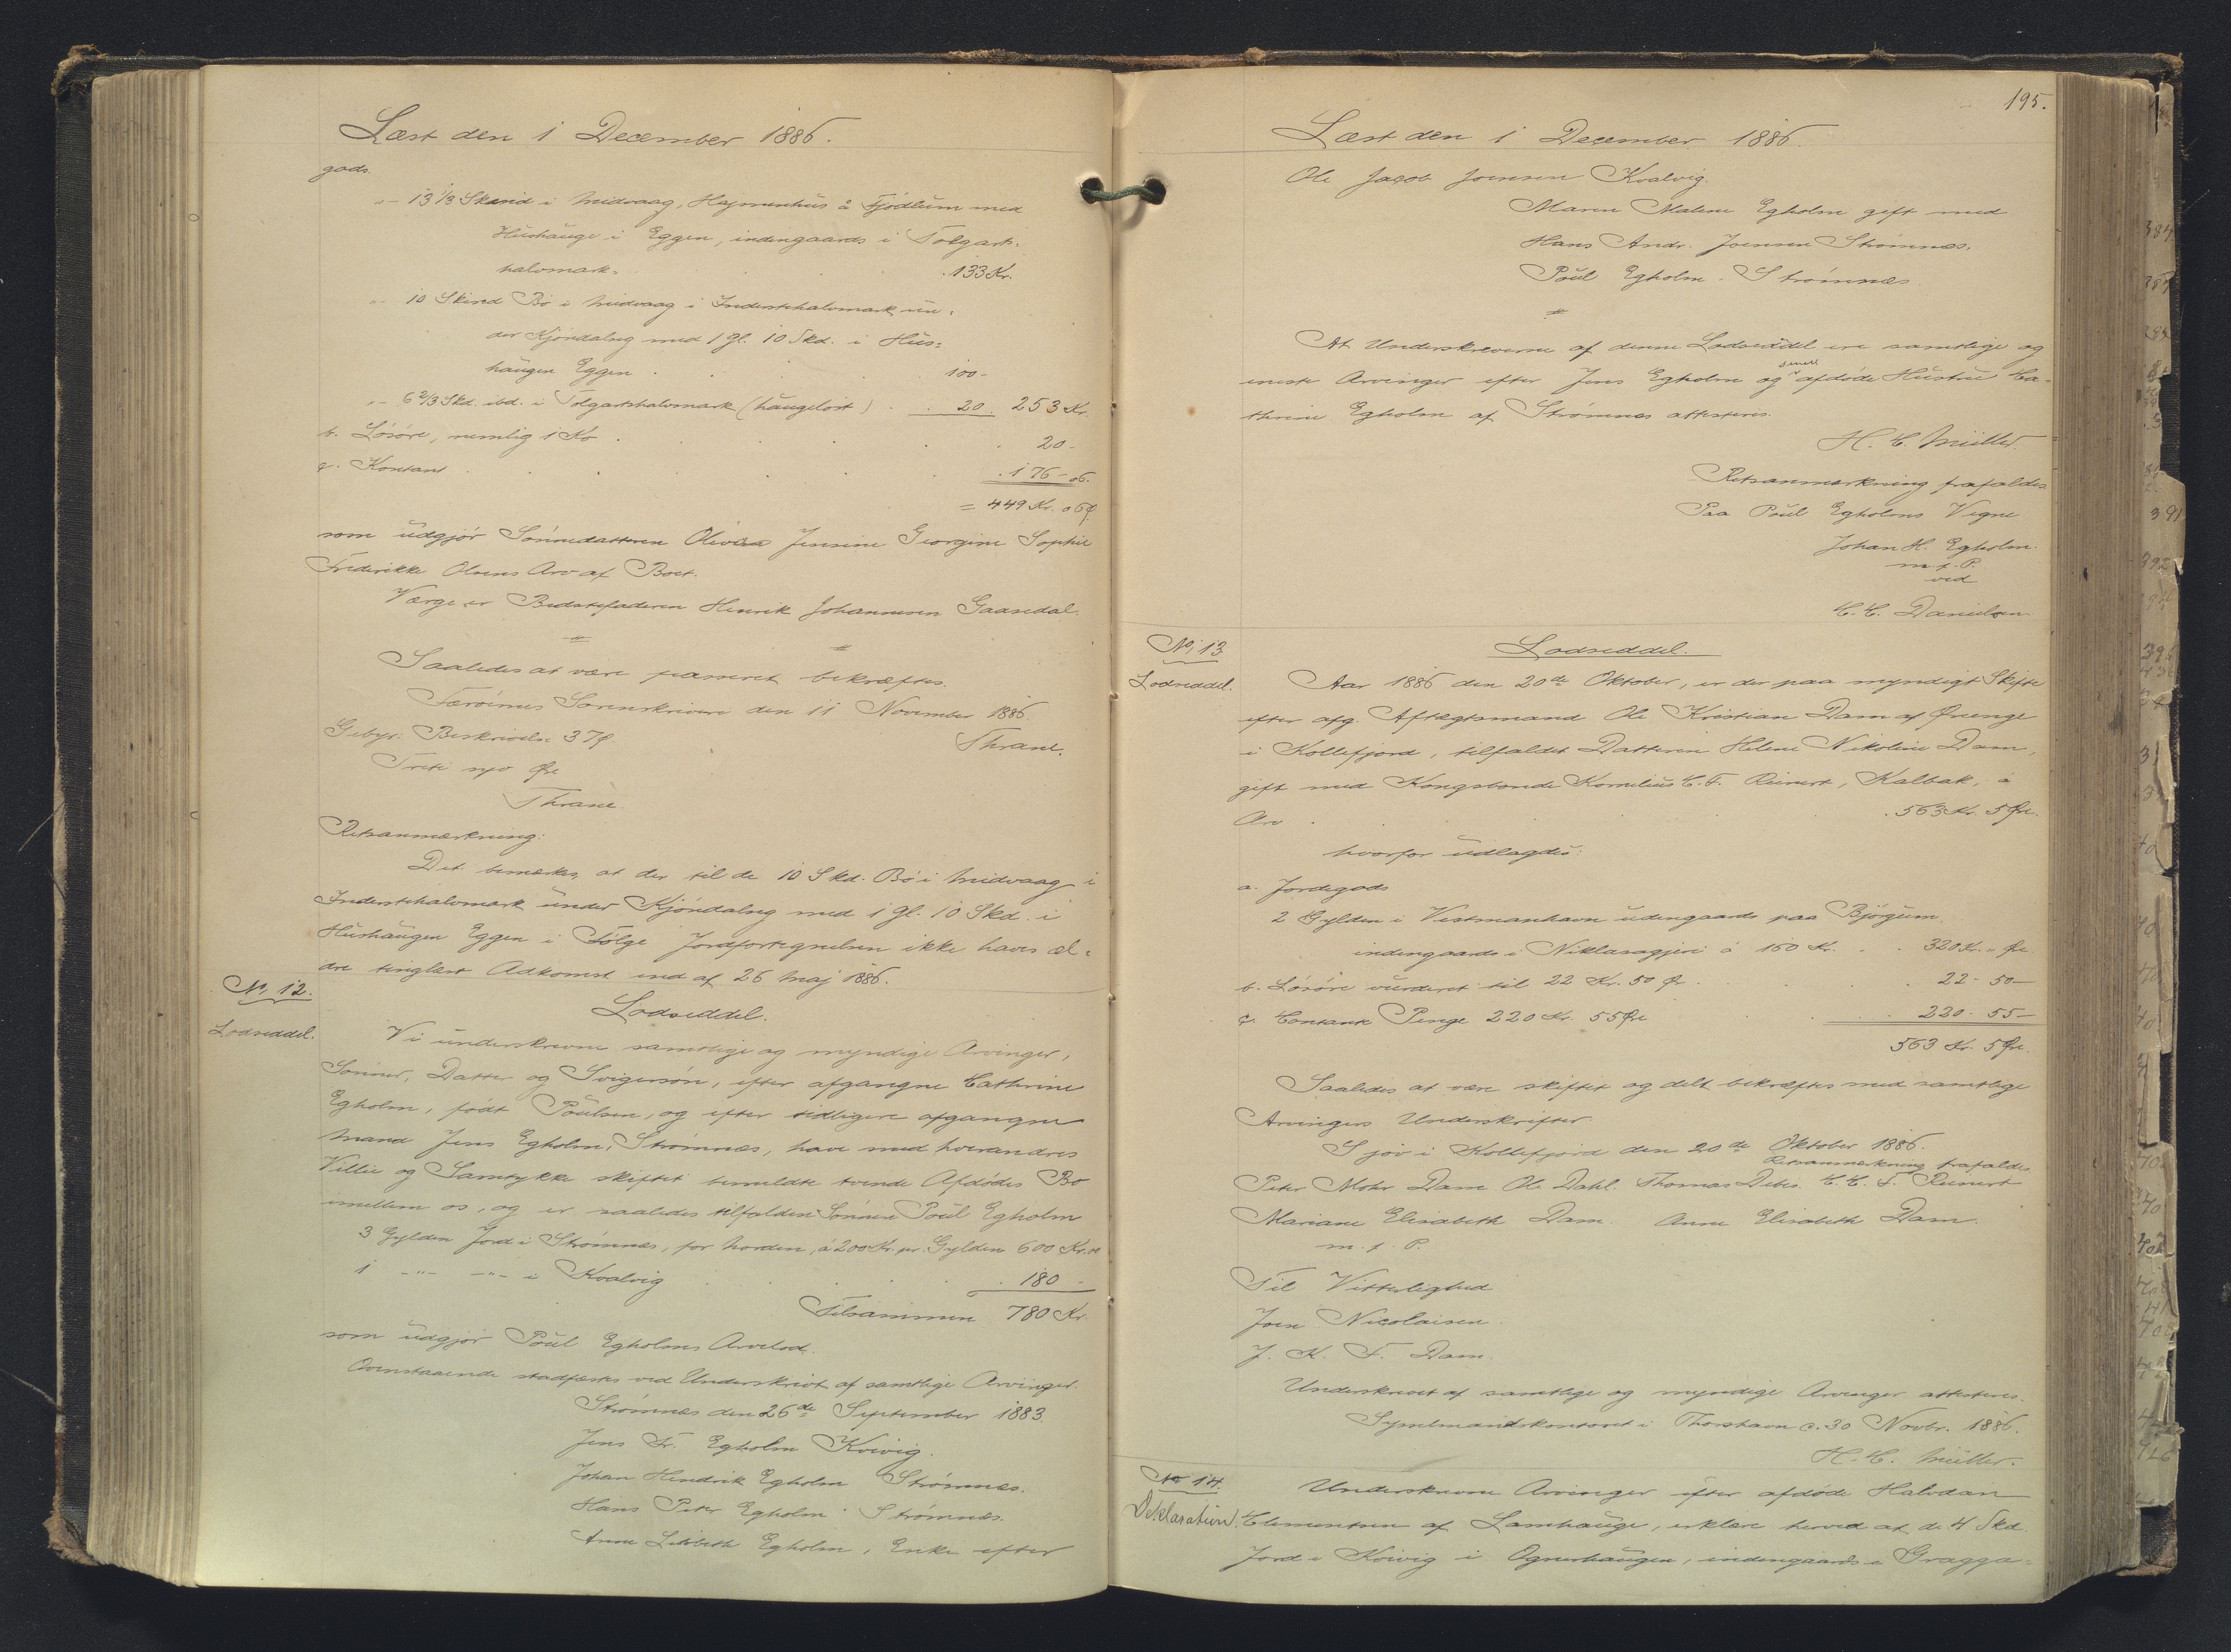 Læst den 1 December 1886.
gods.
"- 13 1/3 Skind i Midvaag, Hajmenhus å Fjødlum med
Hushauge i Eggen, indengaards i Tolgarts-
halvmark. 133 Kr.
"- 10 Skind Bø i Midvaag i Indestehalvmark un-
der Kjøndalng med 1 gl. 10 Skd. i Hus-
haugen Eggen 100 -
"- 6 2/3 Skd. ibd. i Tolgartshalvmark (haugeløst) 20. 253 Kr.
b. Løsøre, nemlig 1 Ko 20 -
c. Kontant 176 - 06.
= 449 Kr. 06 Ø.
som udgjør Sønnedatteren Olivia Jensine Georgine Sophie
Frederikke Olsens Arv af Boet.
Værge er Bedstefaderen Henrik Johannesen Gaasedal.
Saaledes at være passeret bekræftes.
Færøernes Sorenskriveri den 11 November 1886.
Gebyr: Beskrivelse 37 Ø. Thrane.
Treti syv Øre
Thrane.
Retsanmærkning:
Det bemærkes, at der til de 10 Skd. Bø i Midvaag i
Inderstehalvmark under Kjøndalng med 1 gl. 10 Skd. i
Hushaugen Eggen i Følge Jordfortegnelsen ikke haves æl-
dre tinglæst Adkomst end af 26 Maj 1886.
No. 12.
Lodseddel.
Lodseddel.
Vi underskrevne samtlige og myndige Arvinger,
Sønner, Datter og Svigersøn, efter afgangne Cathrine
Egholm, født Poulsen, og efter tidligere afgangne
Mand Jens Egholm, Strømnæs, have med hverandres
Villie og Samtykke skiftet bemeldte tvende Afdødes Bo
imellem os, og er saaledes tilfalden Sønnen Poul Egholm
3 Gylden Jord i Strømnæs, for Norden, á 200 Kr. pr. Gylden 600 Kr.
1 -"- -"- i Kvalvig 180 -
Tilsammen 780 Kr.
som udgjør Poul Egholms Arvelod.
Ovenstaaende stadfæstes ved Underskrivt af samtlige Arvinger.
Strømnæs den 26de September 1883.
Jens Fr. Egholm Kvivig.
Johan Hendrik Egholm Strømnæs.
Hans Peter Egholm Strømnæs.
Anne Lisbeth Egholm, Enke efter
195.
Læst den 1 December 1886.
Ole Jacob Joensen Kvalvig.
Maren Malene Egholm gift med
Hans Andr. Joensen Strømnæs.
Poul Egholm. Strømnæs
At Underskriverne af denne Lodseddel ere samtlige og
eneste Arvinger efter Jens Egholm og senere afdøde Hustru Ca-
thrine Egholm af Strømnæs attesteres.
H. C. Müller.
Retsanmærkning frafaldes
Paa Poul Egholms Vegne
Johan H. Egholm.
m. f. P.
ved
C. C. Danielsen
No. 13
Lodseddel.
Lodseddel.
Aar 1886 den 20de Oktober, er der paa myndigt Skifte
efter afg. Aftægtsmand Ole Kristian Dam af Ørenge
i Kollefjord, tilfaldet Datteren Helene Nikoline Dam,
gift med Kongsbonde Kornelius C. F. Reinert, Kalbak, i
Arv 563 Kr. 5 Øre.
hvorfor udlagdes:
a. Jordegods
2 Gylden i Vestmanhavn udengaards paa Bjørgum.
indengaards i Niklasargjeri á 160 Kr. 320 Kr. " Øre
b. Løsøre vurderet til 22 Kr. 50 Ø. 22 - 50 -
c. Contante Penge 220 Kr. 55 Øre 220 - 55 -
563 Kr. 5 Øre.
Saaledes at være skiftet og delt bekræftes med samtlige
Arvingers Underskrifter
Sjov i Kollefjord den 20de Oktober 1886.
Retsanmærkning frafaldes
Peter Mohr Dam Ole Dahl. Thomas Debes. C. C. F. Reinert
Mariane Elisabeth Dam. Anne Elisabeth Dam.
m. f. P.
Til Vitterlighed
Joen Nicolaisen.
J. K. F. Dam.
Underskrevet af samtlige og myndige Arvinger attesteres.
Sysselmandskontoret i Thorshavn d. 30 Novbr. 1886.
H. C. Müller.
No 14.
Deklaration.
Underskrevne Arvinger efter afdøde Halvdan
Clementsen af Lamhauge, erklære herved at de 4 Skd.
Jord i Kvivig i Ognerhaugen, indengaards i Gragga-